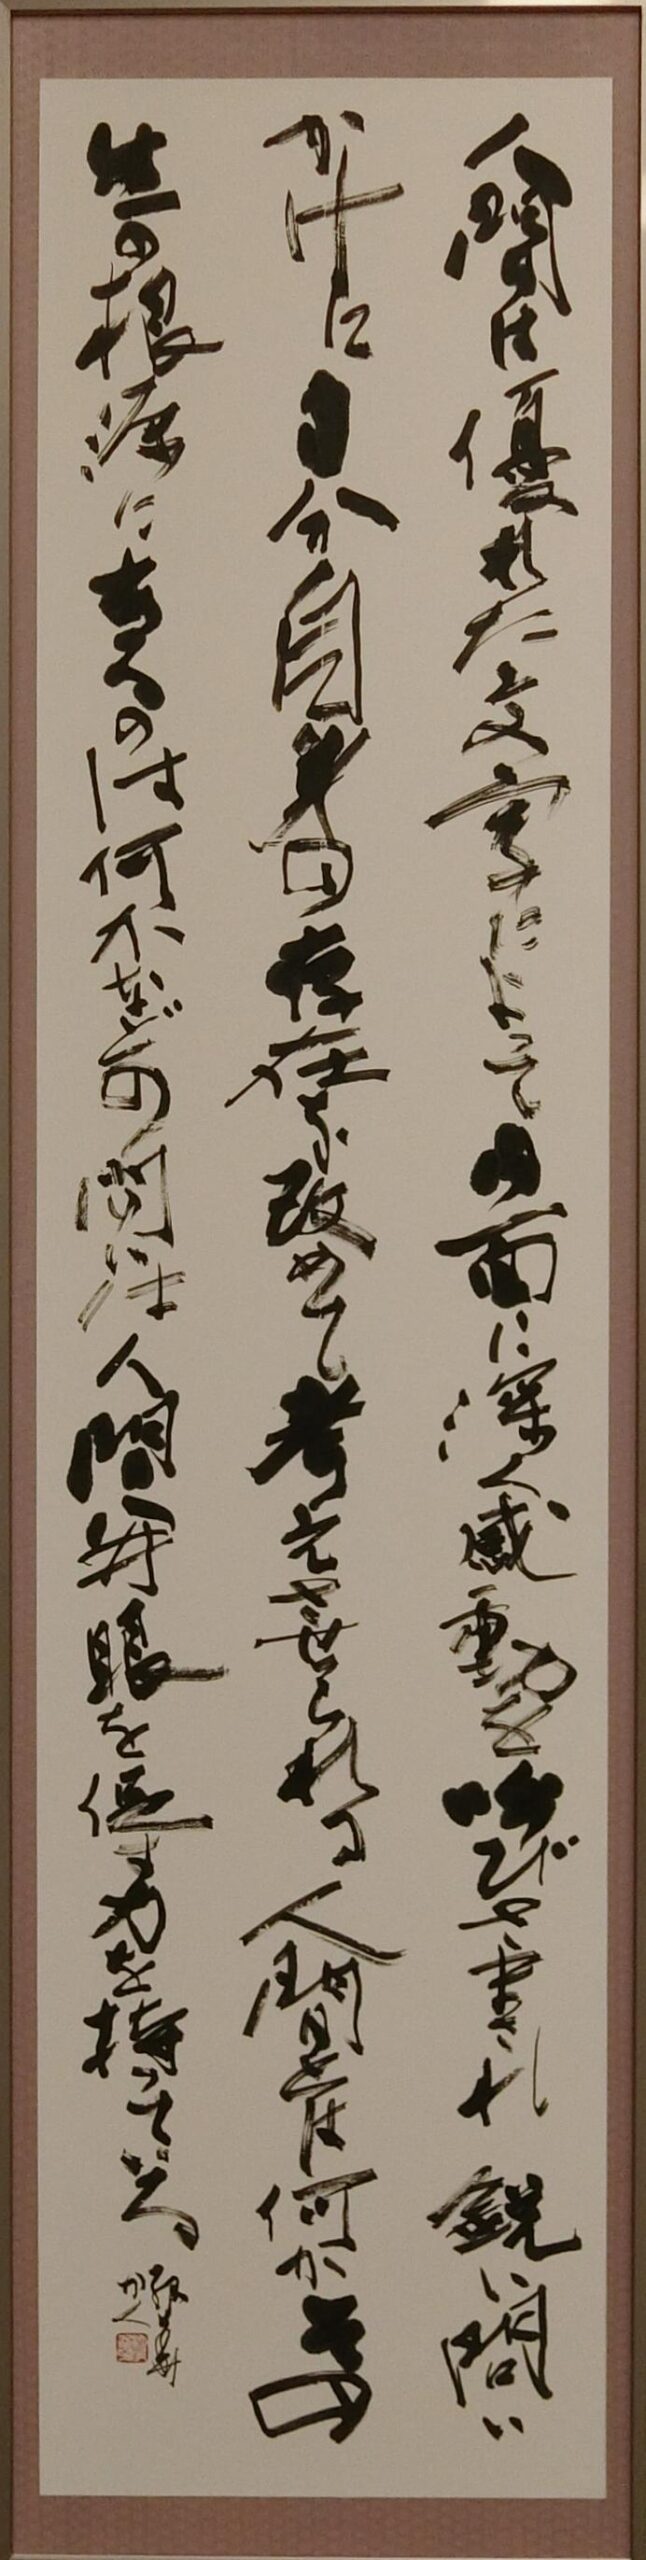 人間は優れた文字によって内面に深く感動を呼びさまされ鋭い問い
かけに自分自身の存在を改めて考えさせられる人間とは何かその
生の根源にあるのは何かなどの問は人間の開眼を促す力を持っている
かく